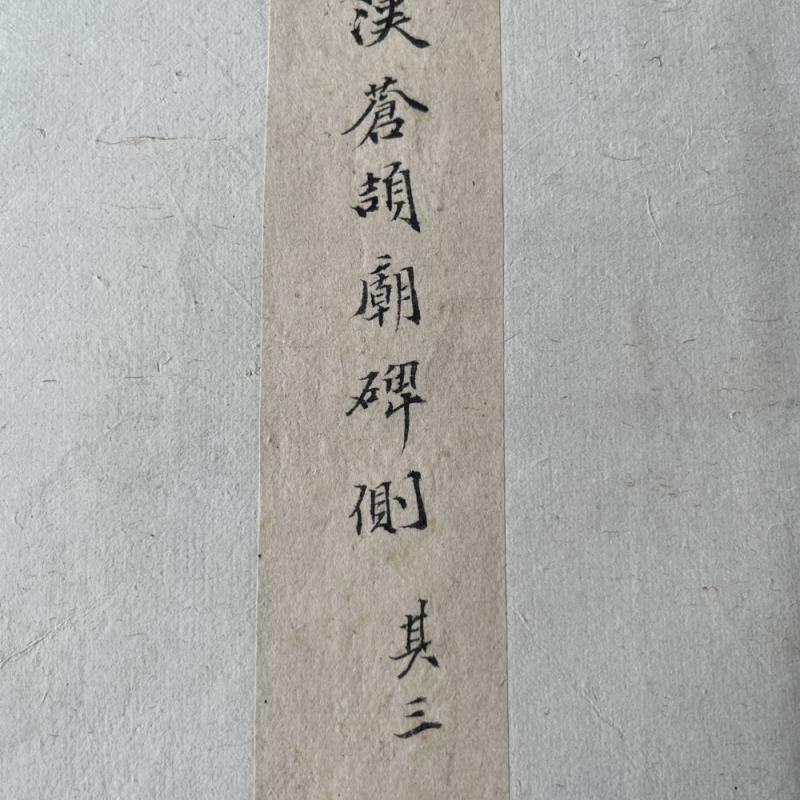 漢蒼頡廟碑側
其三